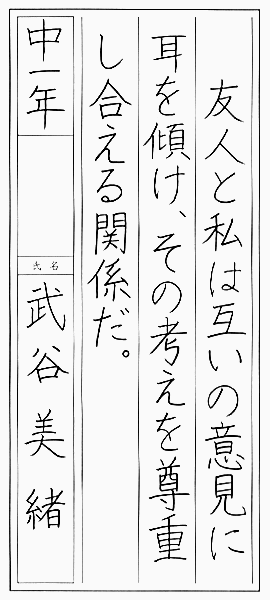 友人と私は互いの意見に
耳を傾け、その考えを尊重
し合える関係だ。
中一年
氏名
武谷美緒